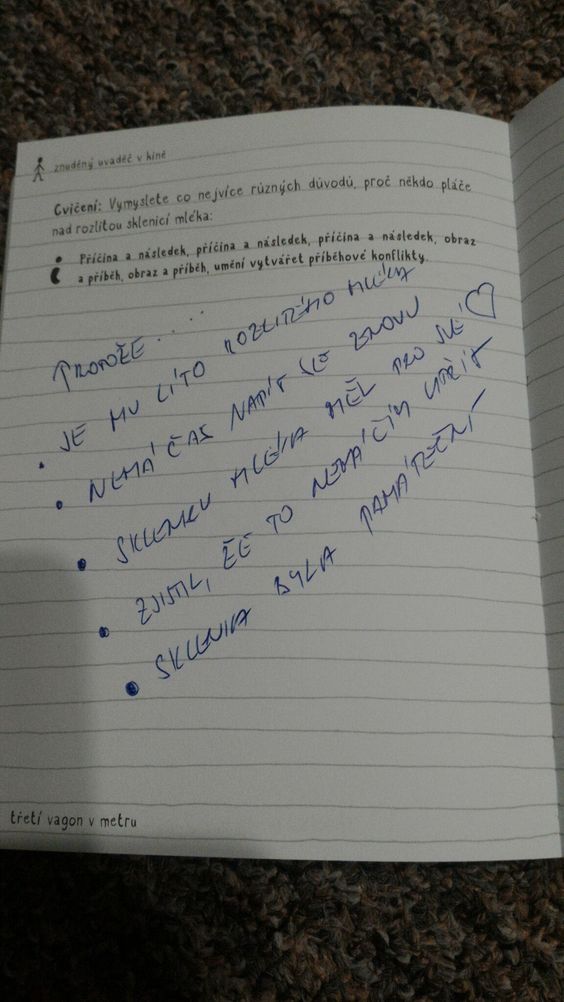 znuděný uvaděč v kině
Cvičení: Vymyslete co nejvíce různých důvodů, proč někdo pláče
nad rozlitou sklenicí mléka:
Příčina a následek, příčina a následek, příčina a následek, obraz
a příběh, obraz a příběh, umění vytvářet příběhové konflikty.
PROTOŽE....
• JE MU LÍTO ROZLITÉHO MLÉKA
• NEMÁ ČAS NAPÍT SE ZNOVU
• SKLENKU MLÉKA MĚL PRO SVÉ ♡
• ZJISTIL, ŽE TO NEMÁ ČÍM UTŘÍT
• SKLENICE BYLA PAMÁTEČNÍ
třetí vagon v metru